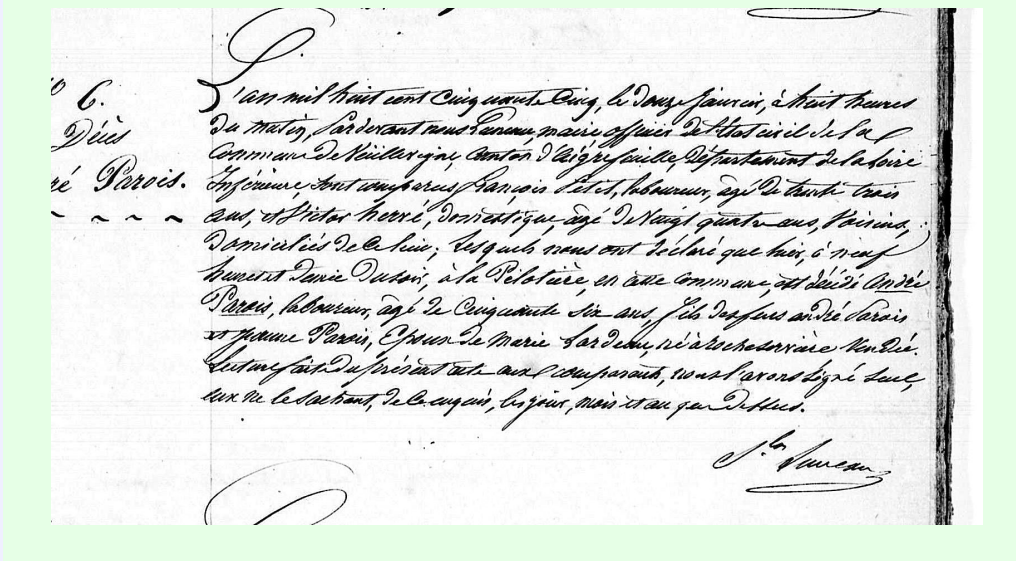 6.
Décès
Parois.
L'an mil huit cent cinquante cinq, le douze Janvier, à huit heures
du matin, Pardevant nous maire officier de l'état civil de la
Commune de Vieillevigne, canton d'Aigrefeuille, Département de la Loire
Inférieure, sont comparus françois Petit, laboureur, âgé de trente trois
ans, et Victor hervé, domestique, âgé de Vingt quatre ans, Voisins,
domiciliés de ce lieu; lesquels nous ont déclaré que hier, à neuf
heures et demie du soir, à la Pilotière, en cette commune, est décédé André
Parois, laboureur, âgé de cinquante six ans, fils des feus andré Parois
et Jeanne Parois, Epoux de Marie né à rocheservière Vendée.
Lecture faite du présent acte aux comparants, nous l'avons signé seul,
eux ne le sachant, de ce enquis, les jour, mois et an que dessus.